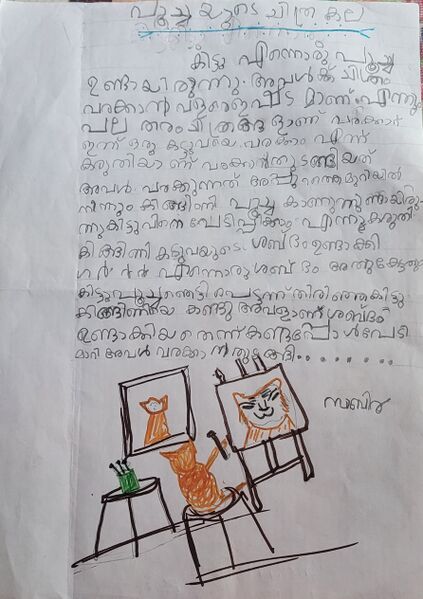 പൂച്ചയുടെ ചിത്രകല
കിട്ടു എന്നൊരു പൂച്ച
ഉണ്ടായിരുന്നു. അവൾക്ക് ചിത്രം
വരക്കാൻ വളരെ ഇഷ്ട മാണ്. എന്നും
പല തരം ചിത്രങ്ങ ളാണ് വരക്കാറ്
ഇന്ന് ഒരു കടുവയെ വരക്കാം എന്ന്
കരുതിയാ ണ് വരക്കാൻതുടങ്ങിയത്
അവൾ വരക്കുന്നത് അപ്പുറത്തെമുറിയിൽ
നിന്നും കിങ്ങിണി പൂച്ച കാണുന്നുണ്ടായിരു-
ന്നുകിട്ടുവിനെ പേടിപ്പിക്കാം എന്നുകരുതി
കിങ്ങിണി കടുവയുടെ ശബ്ദം ഉണ്ടാക്കി
ഗർ ർ ർ എന്നൊരു ശബ്ദം അതുകേട്ടതും
കിട്ടുപൂച്ച ഞെട്ടി പെട്ടന്ന് തിരിഞ്ഞുകിട്ടു
കിങ്ങിണിയെ കണ്ടു അവളാണ് ശബ്ദം
ഉണ്ടാക്കിയ തെന്ന് കണ്ടപ്പോൾ പേടി
മാറി അവൾ വരക്കാ ൻതുടങ്ങി..........
സാബിറ